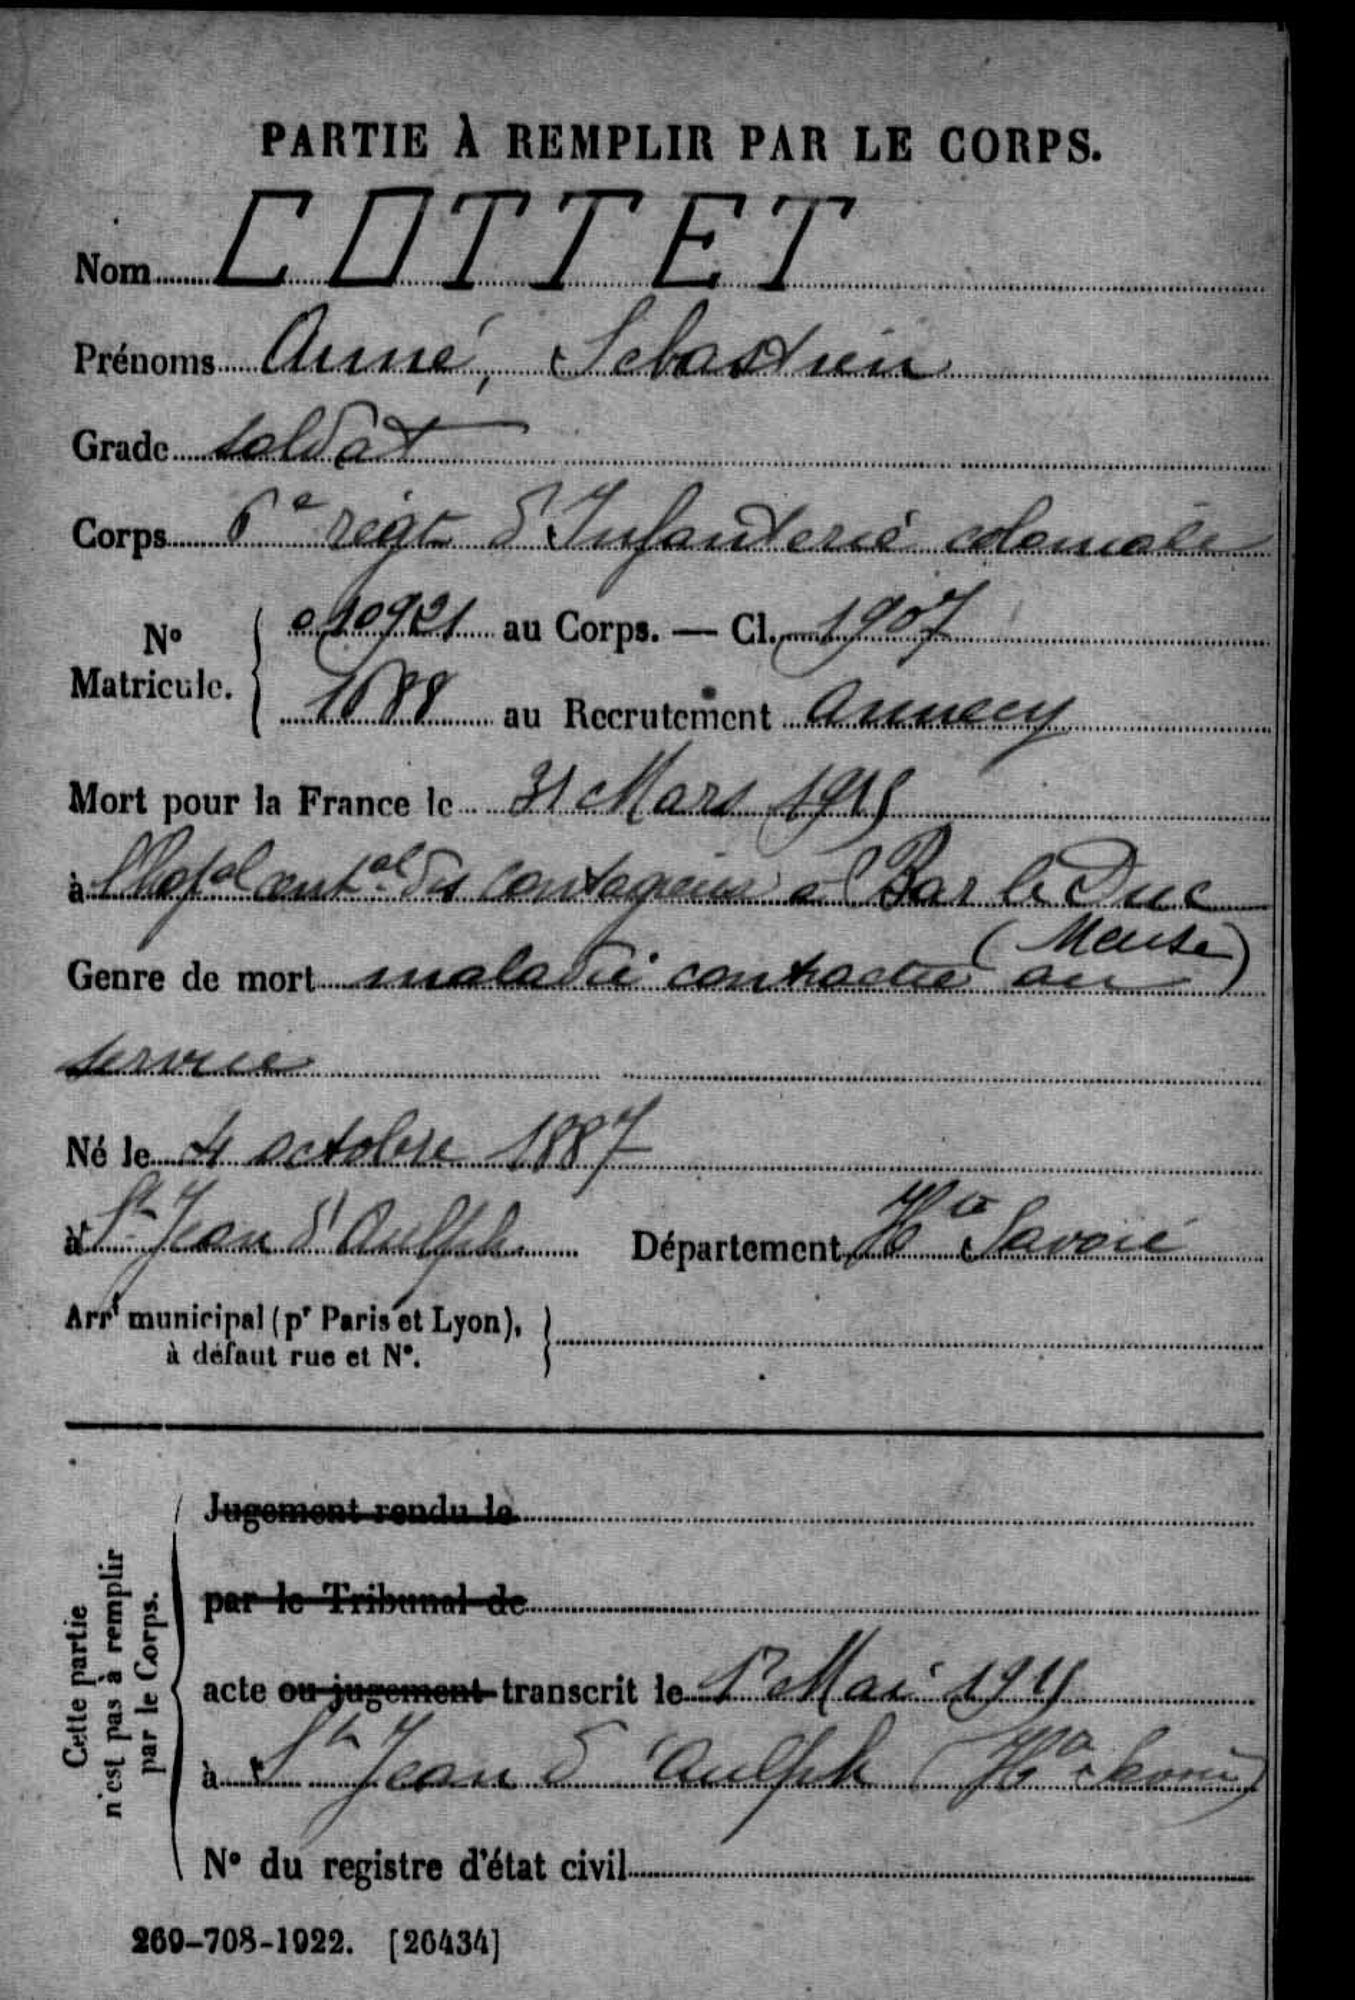 PARTIE À REMPLIR PAR LE CORPS.
Nom COTTET
Prénoms Aimé, Sébastien
Grade soldat
Corps 6e régt d'Infanterie coloniale
No Matricule. 010921 au Corps. — Cl. 1907
1688 au Recrutement Annecy
Mort pour la France le 31 Mars 1915
à l'Hopal cental des contagieux à Bar le Duc
(Meuse)
Genre de mort maladie contractée au
service
Né le 4 octobre 1887
à St Jean d'Aulph Département Hte Savoie
Arrt municipal (pr Paris et Lyon),
à défaut rue et No.
Cette partie
n'est pas à remplir
par le Corps.
Jugement rendu le
par le Tribunal de
acte ou jugement transcrit le 1er Mai 1915
à St Jean d'Aulph (Hte Savoie)
No du registre d'état civil
269-708-1922. [26434]